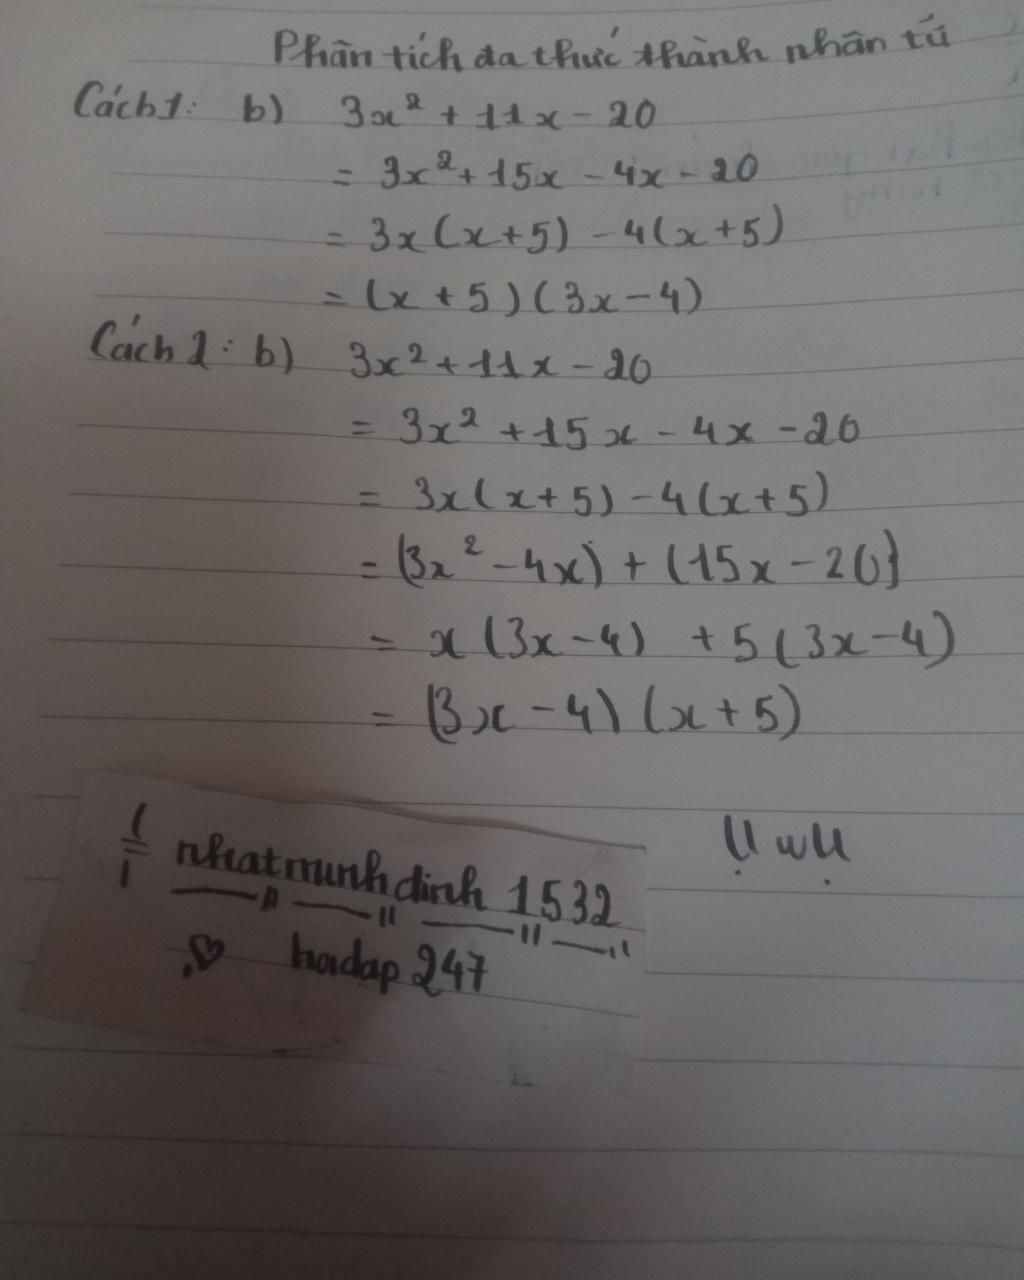 Phân tích đa thức thành nhân tử
Cách 1: b) 3x² + 11x - 20
= 3x² + 15x - 4x - 20
= 3x(x+5) - 4(x+5)
= (x+5)(3x-4)
Cách 2: b) 3x² + 11x - 20
= 3x² + 15x - 4x - 20
= 3x(x+5) - 4(x+5)
= (3x² - 4x) + (15x - 20)
= x(3x-4) + 5(3x-4)
= (3x-4)(x+5)
UwU
nhatminhdinh1532
hoidap247